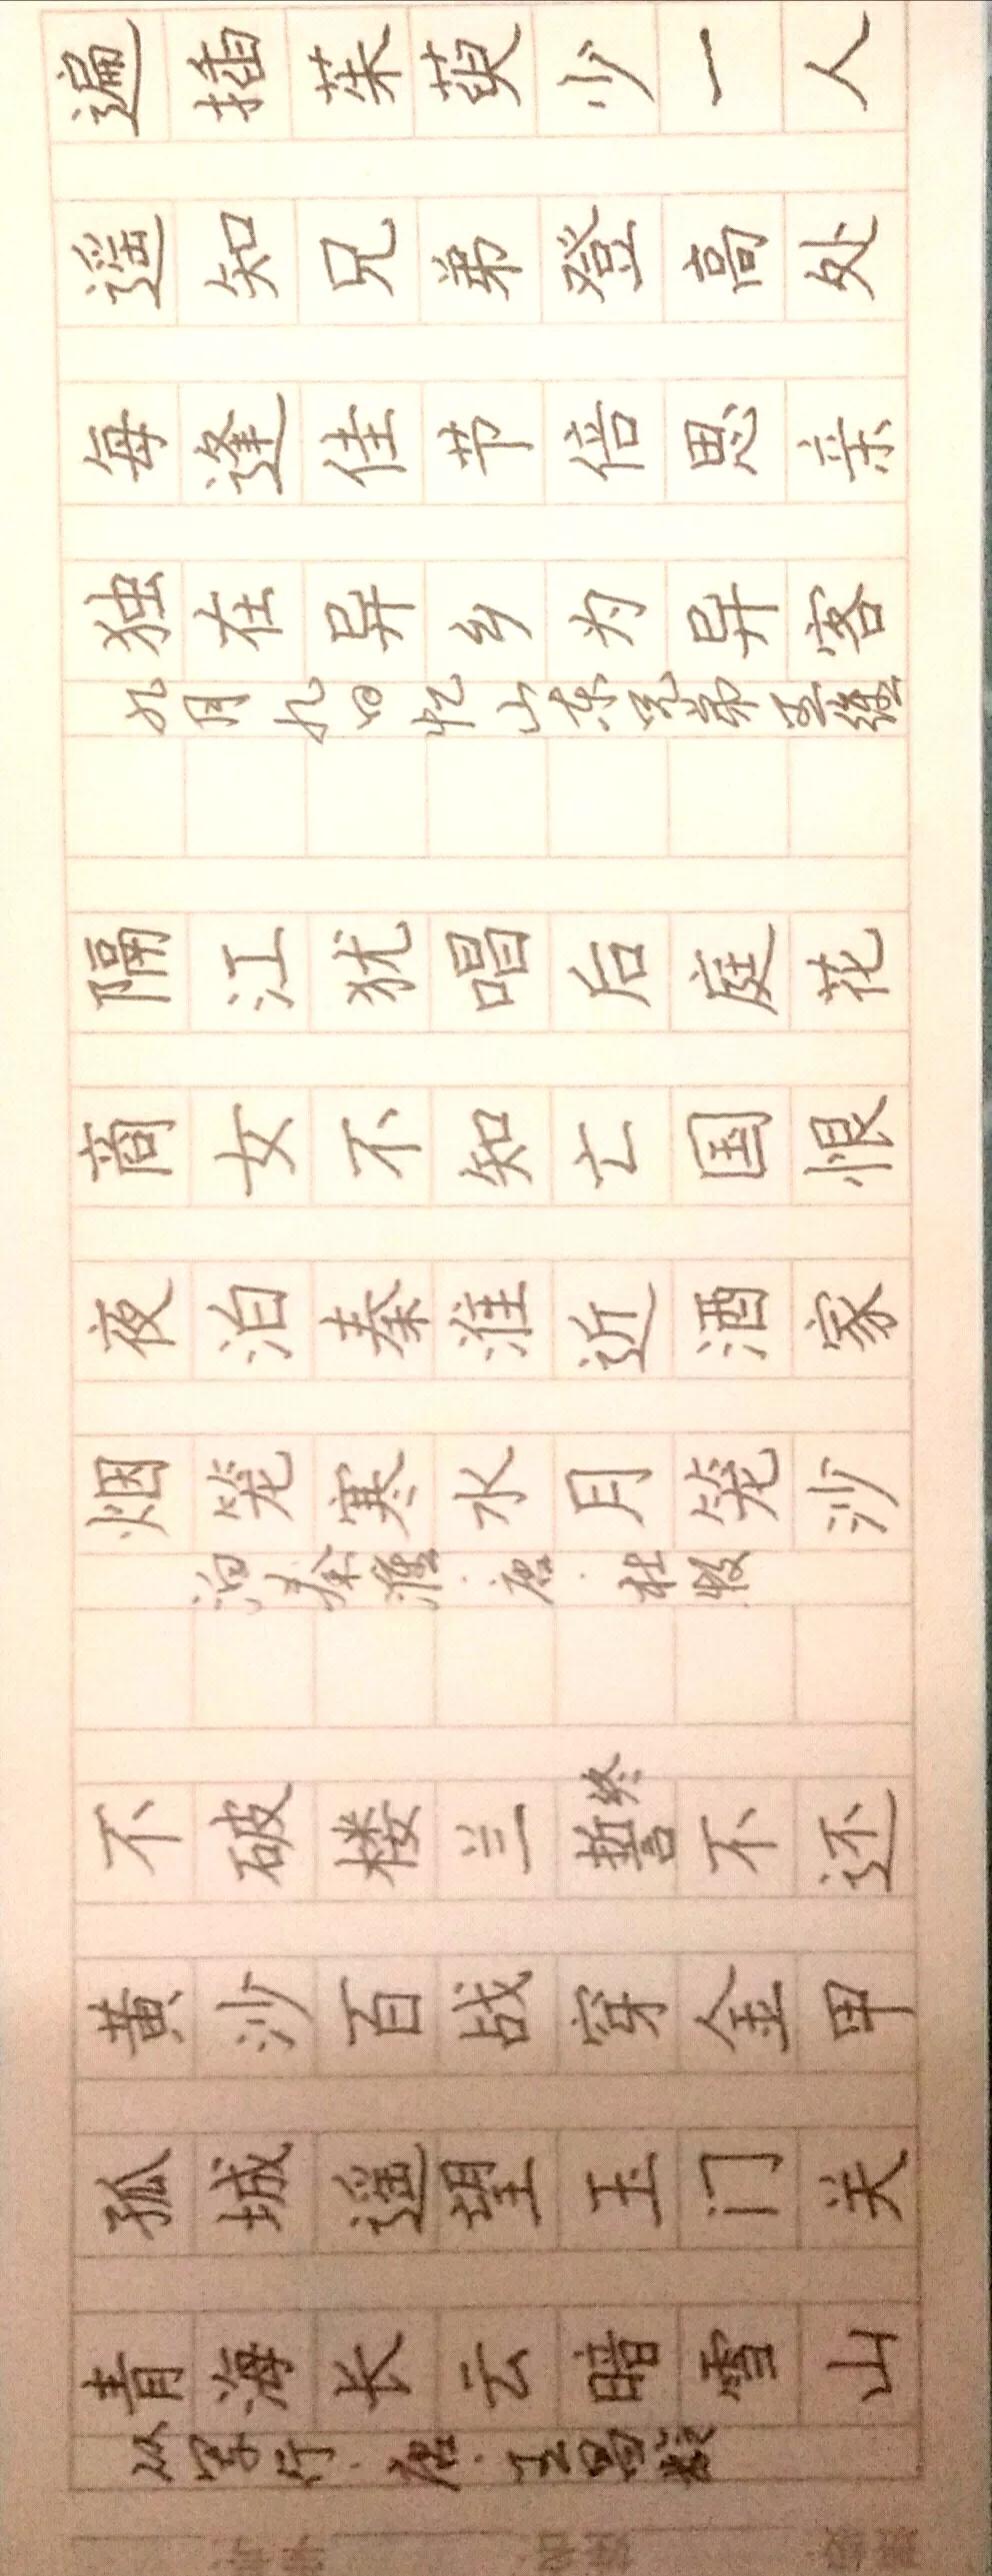 从军行·唐·王昌龄
青海长云暗雪山
孤城遥望玉门关
黄沙百战穿金甲
不破楼兰誓不还
终
泊秦淮·唐·杜牧
烟笼寒水月笼沙
夜泊秦淮近酒家
商女不知亡国恨
隔江犹唱后庭花
九月九日忆山东兄弟王维
独在异乡为异客
每逢佳节倍思亲
遥知兄弟登高处
遍插茱萸少一人